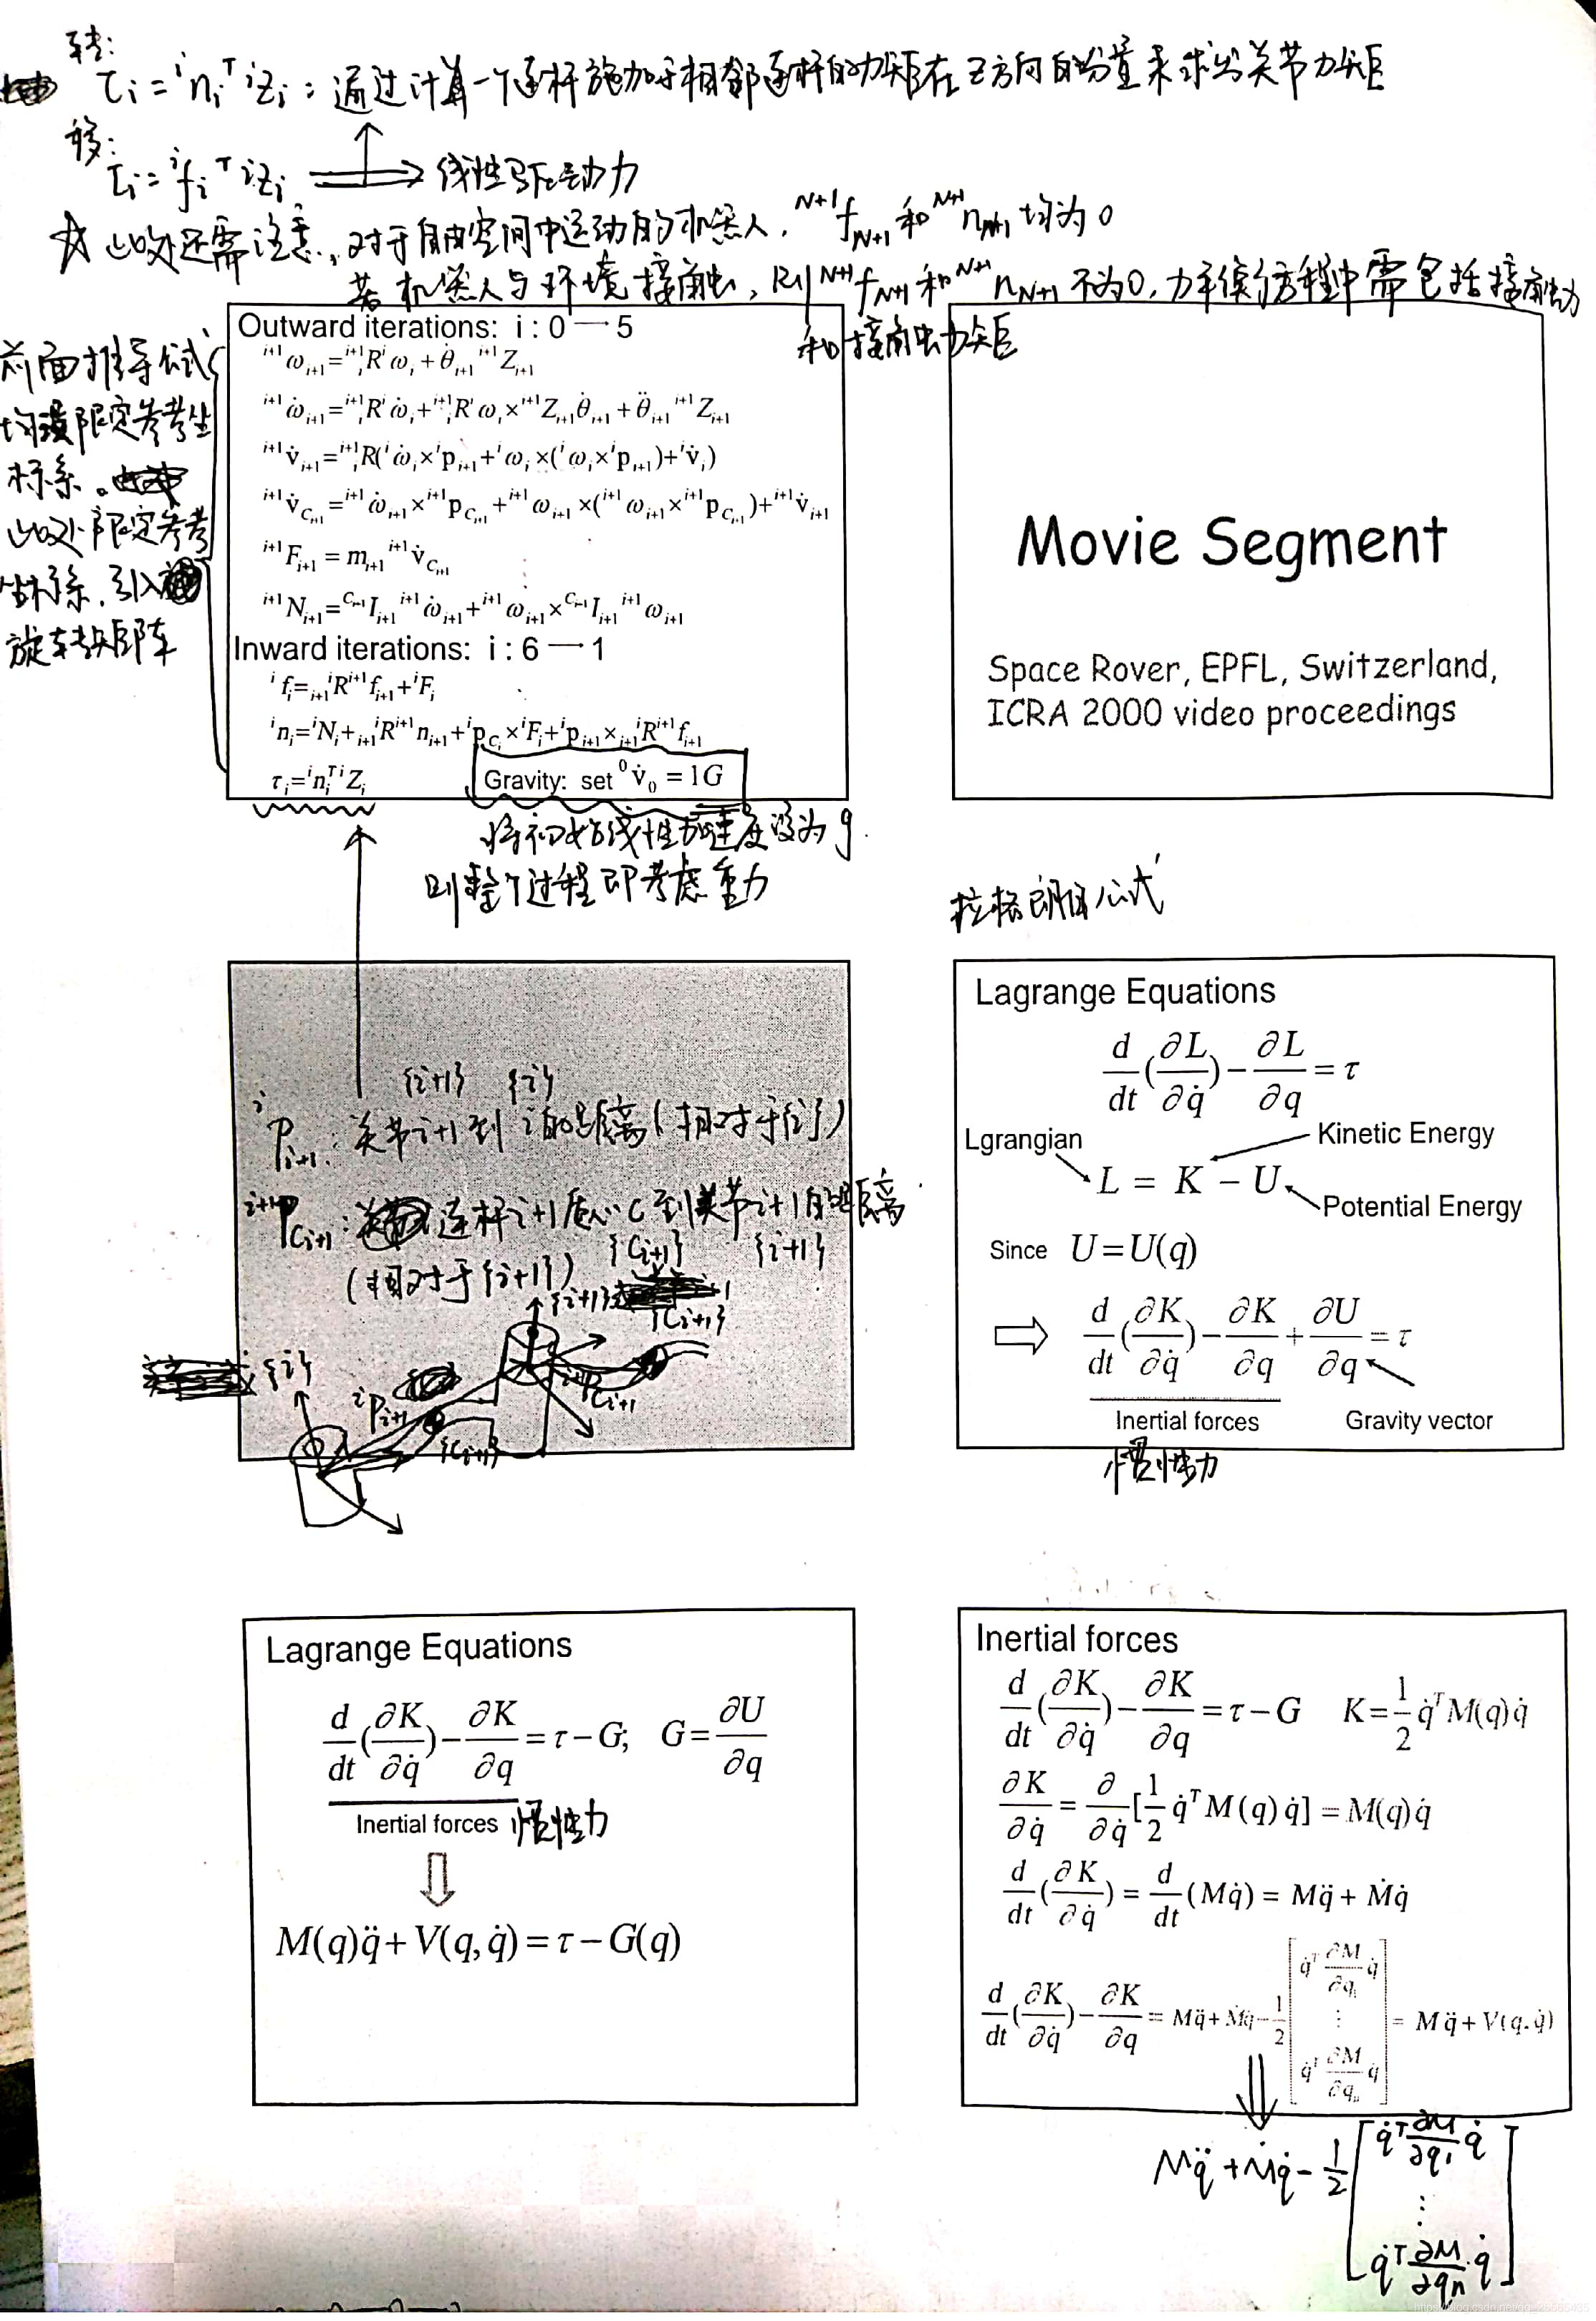 转:
τi = ⁱniᵀ ⁱzi : 通过计算一个连杆施加于相邻连杆的力矩在Z方向的分量来求出关节力矩
移:
τi = ⁱfiᵀ ⁱzi ⟹ 线性驱动力
☆ 此处还需注意, 对于自由空间中运动的机器人, ᴺ⁺¹f_{N+1} 和 ᴺ⁺¹n_{N+1} 均为0
若机器人与环境接触, 则 ᴺ⁺¹f_{N+1} 和 ᴺ⁺¹n_{N+1} 不为0, 力平衡方程中需包括接触力
和接触力矩
前面推导公式
均没限定参考坐
标系。
此处限定参考
坐标系, 引入
旋转矩阵
Outward iterations: i : 0 → 5
ⁱ⁺¹ω_{i+1} = ⁱ⁺¹_iR ⁱω_i + θ̇_{i+1} ⁱ⁺¹Z_{i+1}
ⁱ⁺¹ω̇_{i+1} = ⁱ⁺¹_iR ⁱω̇_i + ⁱ⁺¹_iR ⁱω_i × ⁱ⁺¹Z_{i+1} θ̇_{i+1} + θ̈_{i+1} ⁱ⁺¹Z_{i+1}
ⁱ⁺¹v̇_{i+1} = ⁱ⁺¹_iR(ⁱω̇_i × ⁱp_{i+1} + ⁱω_i × (ⁱω_i × ⁱp_{i+1}) + ⁱv̇_i)
ⁱ⁺¹v̇_{C_{i+1}} = ⁱ⁺¹ω̇_{i+1} × ⁱ⁺¹p_{C_{i+1}} + ⁱ⁺¹ω_{i+1} × (ⁱ⁺¹ω_{i+1} × ⁱ⁺¹p_{C_{i+1}}) + ⁱ⁺¹v̇_{i+1}
ⁱ⁺¹F_{i+1} = m_{i+1} ⁱ⁺¹v̇_{C_{i+1}}
ⁱ⁺¹N_{i+1} = ^{C_{i+1}}I_{i+1} ⁱ⁺¹ω̇_{i+1} + ⁱ⁺¹ω_{i+1} × ^{C_{i+1}}I_{i+1} ⁱ⁺¹ω_{i+1}
Inward iterations: i : 6 → 1
ⁱf_i = _{i+1}ⁱR ⁱ⁺¹f_{i+1} + ⁱF_i
ⁱn_i = ⁱN_i + _{i+1}ⁱR ⁱ⁺¹n_{i+1} + ⁱp_{C_i} × ⁱF_i + ⁱp_{i+1} × _{i+1}ⁱR ⁱ⁺¹f_{i+1}
τ_i = ⁱn_iᵀ ⁱZ_i
Gravity: set ⁰v̇₀ = 1G
将初始线性加速度设为g
则整个过程即考虑重力
Movie Segment
Space Rover, EPFL, Switzerland,
ICRA 2000 video proceedings
{i+1} {i}
ⁱP_{i+1}: 关节i+1到i的距离(相对于{i})
ⁱ⁺¹P_{C_{i+1}}: 连杆i+1质心C到关节i+1的距离
{C_{i+1}} {i+1}
(相对于{i+1})
{i+1}
{C_{i+1}}
{i}
ⁱP_{i+1}
ⁱ⁺¹P_{C_{i+1}}
拉格朗日公式
Lagrange Equations
d/dt(∂L/∂q̇) − ∂L/∂q = τ
Lgrangian
Kinetic Energy
L = K − U
Potential Energy
Since U = U(q)
⇨ d/dt(∂K/∂q̇) − ∂K/∂q + ∂U/∂q = τ
Inertial forces
Gravity vector
惯性力
Lagrange Equations
d/dt(∂K/∂q̇) − ∂K/∂q = τ − G; G = ∂U/∂q
Inertial forces 惯性力
M(q)q̈ + V(q, q̇) = τ − G(q)
Inertial forces
d/dt(∂K/∂q̇) − ∂K/∂q = τ − G K = 1/2 q̇ᵀM(q)q̇
∂K/∂q̇ = ∂/∂q̇[1/2 q̇ᵀM(q)q̇] = M(q)q̇
d/dt(∂K/∂q̇) = d/dt(Mq̇) = Mq̈ + Ṁq̇
d/dt(∂K/∂q̇) − ∂K/∂q = Mq̈ + Ṁq̇ − 1/2[q̇ᵀ ∂M/∂q₁ q̇ ⋮ q̇ᵀ ∂M/∂qₙ q̇] = Mq̈ + V(q, q̇)
Mq̈ + Ṁq̇ − 1/2[q̇ᵀ ∂M/∂q₁ q̇ ⋮ q̇ᵀ ∂M/∂qₙ q̇]